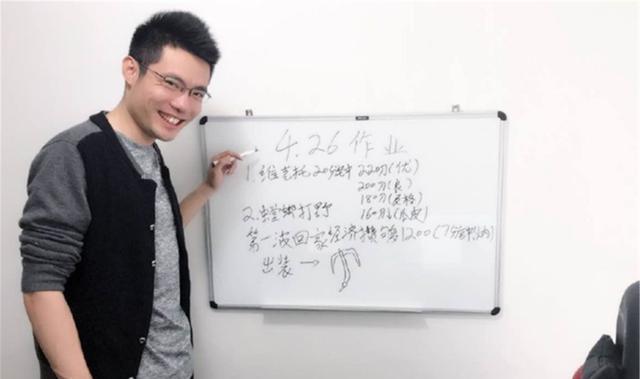 4.26作业
1.维克托20分钟 220刀(优)
200刀(良)
180刀(及格)
2.螳螂打野 160刀
第一波回家经济攒够1200(7分钟内)
出装→